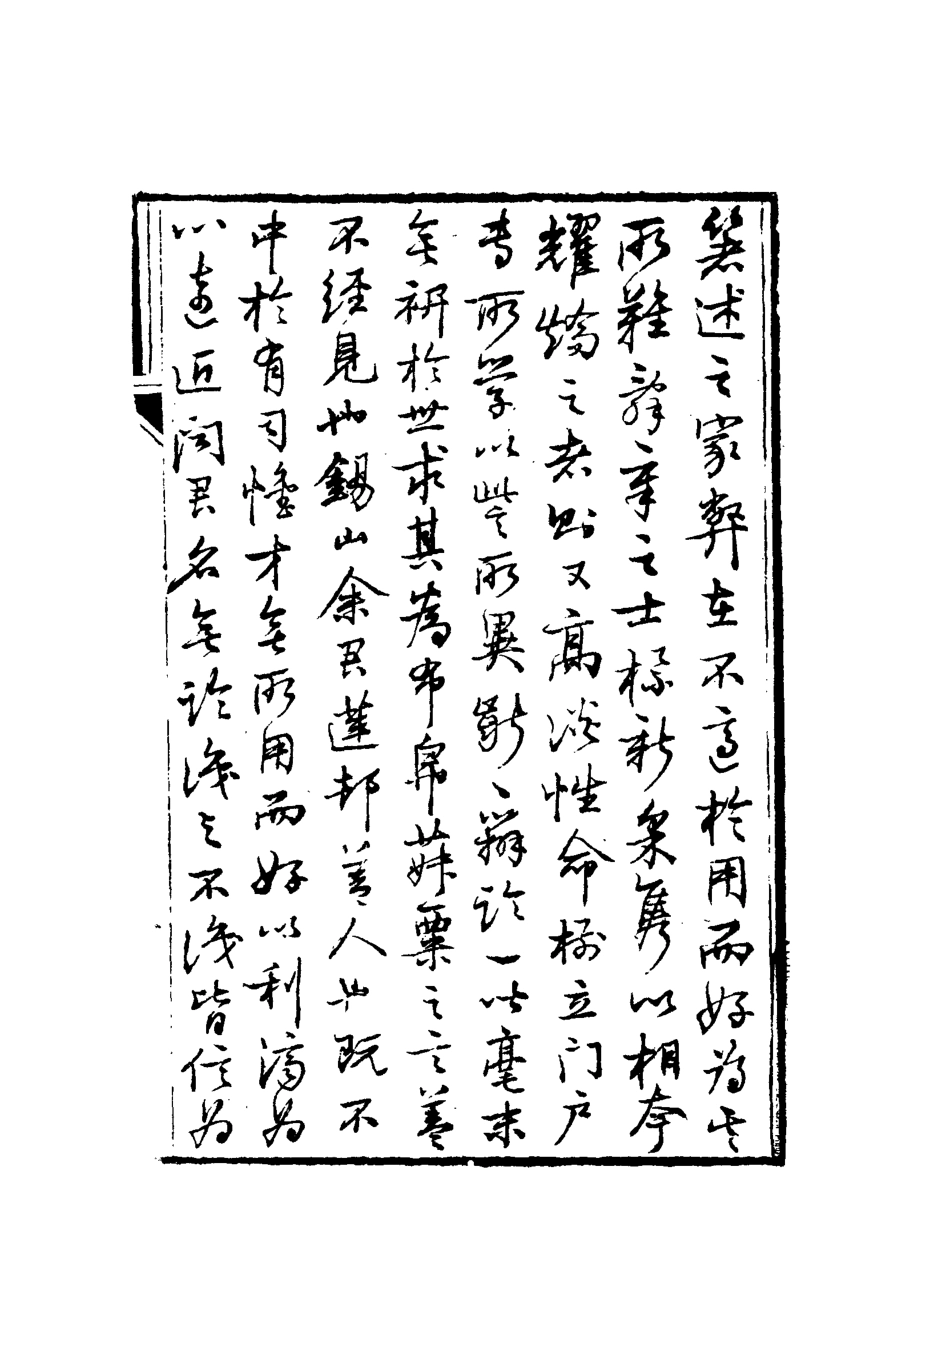 著述之家弊在不適於用而好為其
所難辭章之士標新集雋以相夸
耀矯之者則又高談性命樹立門戶
專所學以訾所異斷斷辯論一時毫末
無裨於世求其為布帛菽粟之言蓋
不經見也錫山余君蓮邨善人也既不
中於有司懷才無所用而好以利濟為
心遠近聞君名無論識與不識皆信為